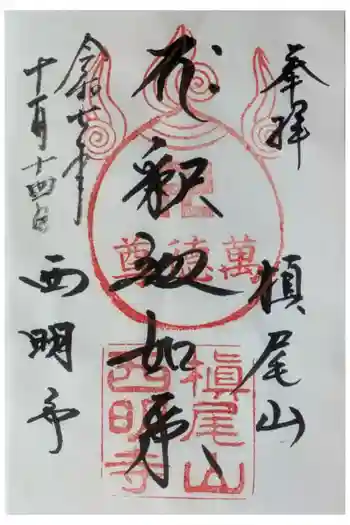 奉拝
槇尾山
釈迦如来
令和七年
十一月十四日
西明寺
萬徳尊
槇尾山
西明寺